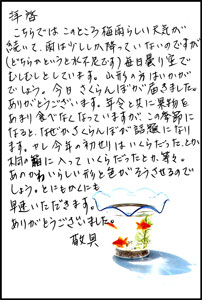 拝啓
こちらではこのところ梅雨らしい天気が
続いて、雨は少ししか降っていないのですが
(どちらかというと水不足です)毎日曇り空で
むしむしとしています。山形の方はいかがで
でしょう。今日さくらんぼが届きました。
ありがとうございます。年令と共に果物を
あまり食べなくなっていますが、この季節に
なると、なぜかさくらんぼが話題になり
ます。やれ今年の初せりはいくらだった、とか
桐の箱に入っていくらだったとか、等々。
あのかわいらしい形と色がそうさせるので
しょう。とにもかくにも
早速いただきます。
ありがとうございました。
敬具